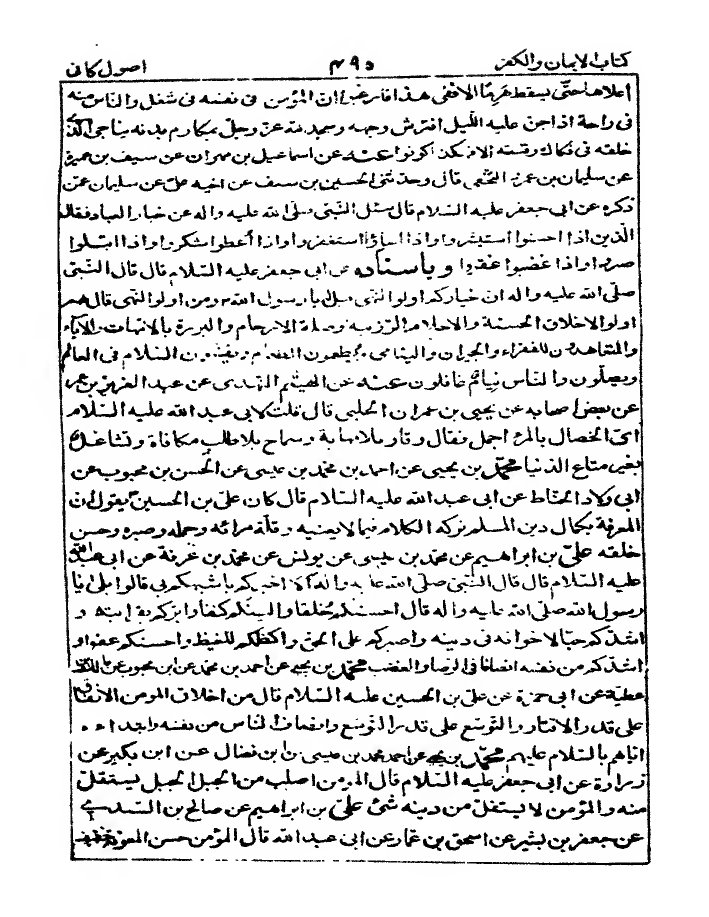 كتاب الايمان والكفر ٤٩٥ اصول كافى
يسقط الافقى هذا ان المؤمن فى نفسه فى شغل والناس منه
فى راحة اذا جن عليه الليل افترش وجهه وسجد لله عز وجل بمكارم بدنه يناجى الذى
خلقه فى فكاك رقبته الا فهكذا كونوا عنه عن اسماعيل بن مهران عن سيف بن عميرة
عن سليمان بن عمرو النخعى قال وحدثنى الحسين بن سيف عن اخيه على عن سليمان عمن
ذكره عن ابى جعفر عليه السلام قال سئل النبى صلى الله عليه واله عن خيار العباد فقال
الذين اذا احسنوا استبشروا واذا اساؤا استغفروا واذا أعطوا شكروا واذا ابتلوا
صبروا واذا غضبوا غفروا وباسناده عن ابى جعفر عليه السلام قال قال النبى
صلى الله عليه واله ان خياركم اولو النهى قيل يا رسول الله ومن اولو النهى قال هم
اولو الاخلاق الحسنة والاحلام الرزينة وصلة الارحام والبررة بالامهات والآباء
والمتعاهدون للفقراء والجيران واليتامى ويطعمون الطعام ويفشون السلام فى العالم
ويصلون والناس نيام غافلون عنه عن الهيثم النهدى عن عبد العزيز بن عمر
عن بعض اصحابه عن يحيى بن عمران الحلبى قال قلت لابى عبد الله عليه السلام
اى الخصال بالمرء اجمل فقال وقار بلا مهابة وسماح بلا طلب مكافاة وتشاغل
بغير متاع الدنيا محمد بن يحيى عن احمد بن محمد بن عيسى عن الحسن بن محبوب عن
ابى ولاد الحناط عن ابى عبد الله عليه السلام قال كان على بن الحسين يقول ان
المعرفة بكمال دين المسلم تركه الكلام فيما لا يعنيه وقلة مرائه وحلمه وصبره وحسن
خلقه على بن ابراهيم عن محمد بن عيسى عن يونس عن محمد بن عرفة عن ابى عبد الله
عليه السلام قال قال النبى صلى الله عليه واله الا اخبركم باشبهكم بى قالوا بلى يا
رسول الله صلى الله عليه واله قال احسنكم خلقا والينكم كنفا وابركم بقرابته و
اشدكم حبا لاخوانه فى دينه واصبركم على الحق واكظمكم للغيظ واحسنكم عفوا و
اشدكم من نفسه انصافا فى الرضا والغضب محمد بن يحيى عن احمد بن محمد عن ابن محبوب عن مالك بن
عطية عن ابى حمزة عن على بن الحسين عليه السلام قال من اخلاق المومن الانفاق
على قدر الاقتار والتوسع على قدر التوسع وانصاف الناس من نفسه وابتداءه
اياهم بالسلام عليهم محمد بن يحيى عن احمد بن محمد بن عيسى عن ابن فضال عن ابن بكير عن
زرارة عن ابى جعفر عليه السلام قال المومن اصلب من الجبل الجبل يستقل
منه والمؤمن لا يستقل من دينه شئ على بن ابراهيم عن صالح بن السندى
عن جعفر بن بشير عن اسحق بن عمار عن ابى عبد الله قال المؤمن حسن المعونة خفيف